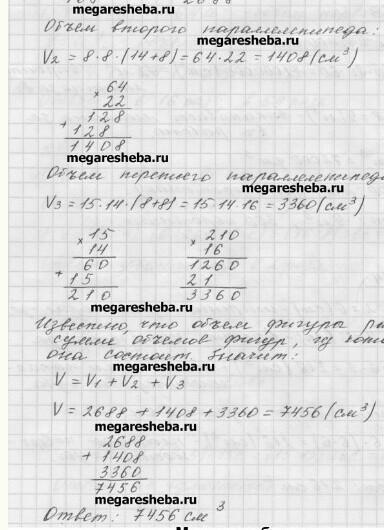 megaresheba.ru
Объем второго параллелепипеда:
megaresheba.ru
V2 = 8·8·(14+8) = 64·22 = 1408 (см³)
× 64
22
128
+ 128
1408
megaresheba.ru
Объем третьего параллелепипеда
megaresheba.ru
V3 = 15·14·(8+8) = 15·14·16 = 3360 (см³)
× 15 × 210
14 16
60 1260
+ 15 21
210 3360
megaresheba.ru
Известно, что объем фигуры
сумме объемов фигур, из
она состоит. Значит:
megaresheba.ru
V = V1 + V2 + V3
V = 2688 + 1408 + 3360 = 7456 (см³)
megaresheba.ru
2688
+ 1408
3360
7456
megaresheba.ru
Ответ: 7456 см³